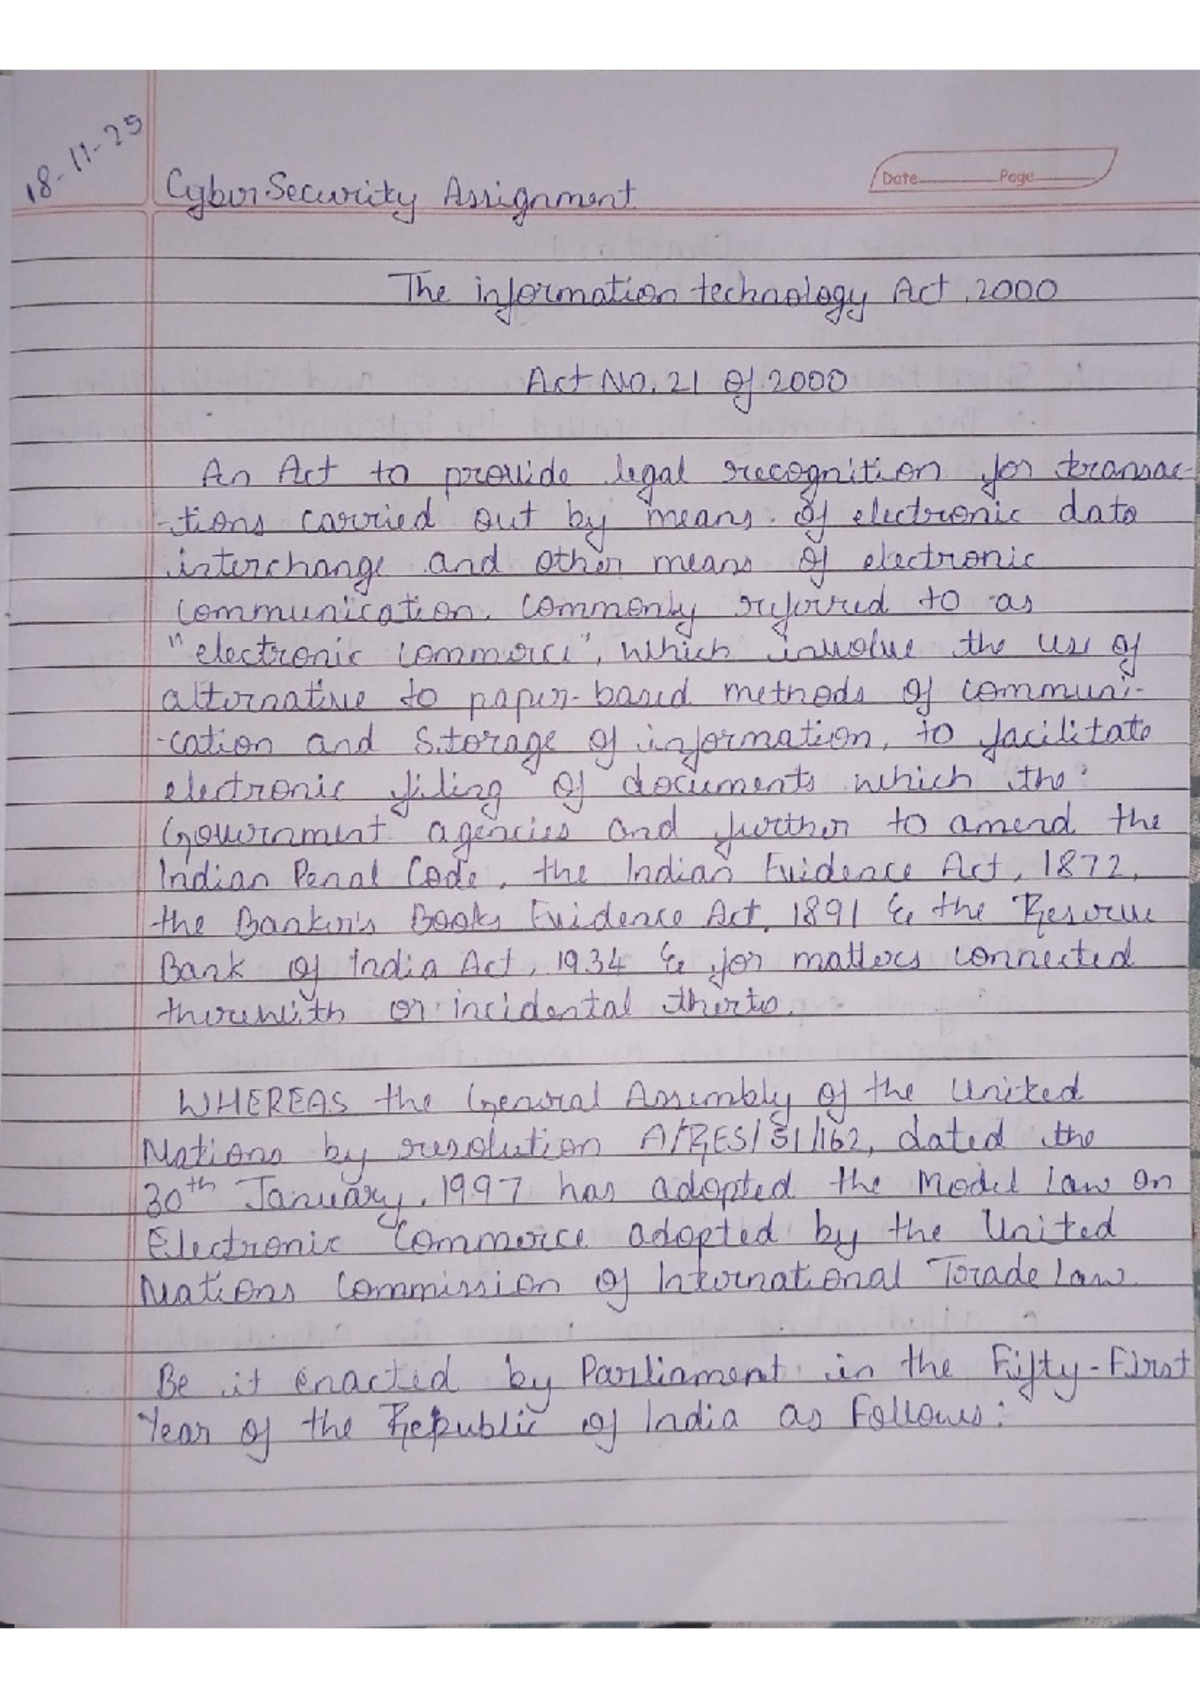 18-11-25
Date Page
Cyber Security Assignment
The information technology Act, 2000
Act No. 21 Of 2000
An Act to provide legal recognition for transac-
-tions carried out by means of electronic data
interchange and other means of electronic
communication. commonly referred to as
"electronic commerce", which involve the use of
alternative to paper-based methods of communi-
-cation and storage of information, to facilitate
electronic filing of documents which the
Government agencies and further to amend the
Indian Penal Code, the Indian Evidence Act, 1872,
the Banker's Books Evidence Act, 1891 & the Reserve
Bank of India Act, 1934 & for matters connected
therewith or incidental therto.
WHEREAS the General Assembly of the United
Nations by resolution A/RES/51/162, dated the
30th January, 1997 has adopted the Model law on
Electronic Commerce adopted by the United
Nations Commission of International Trade law.
Be it enacted by Parliament in the Fifty-First
Year of the Republic of India as Follows: